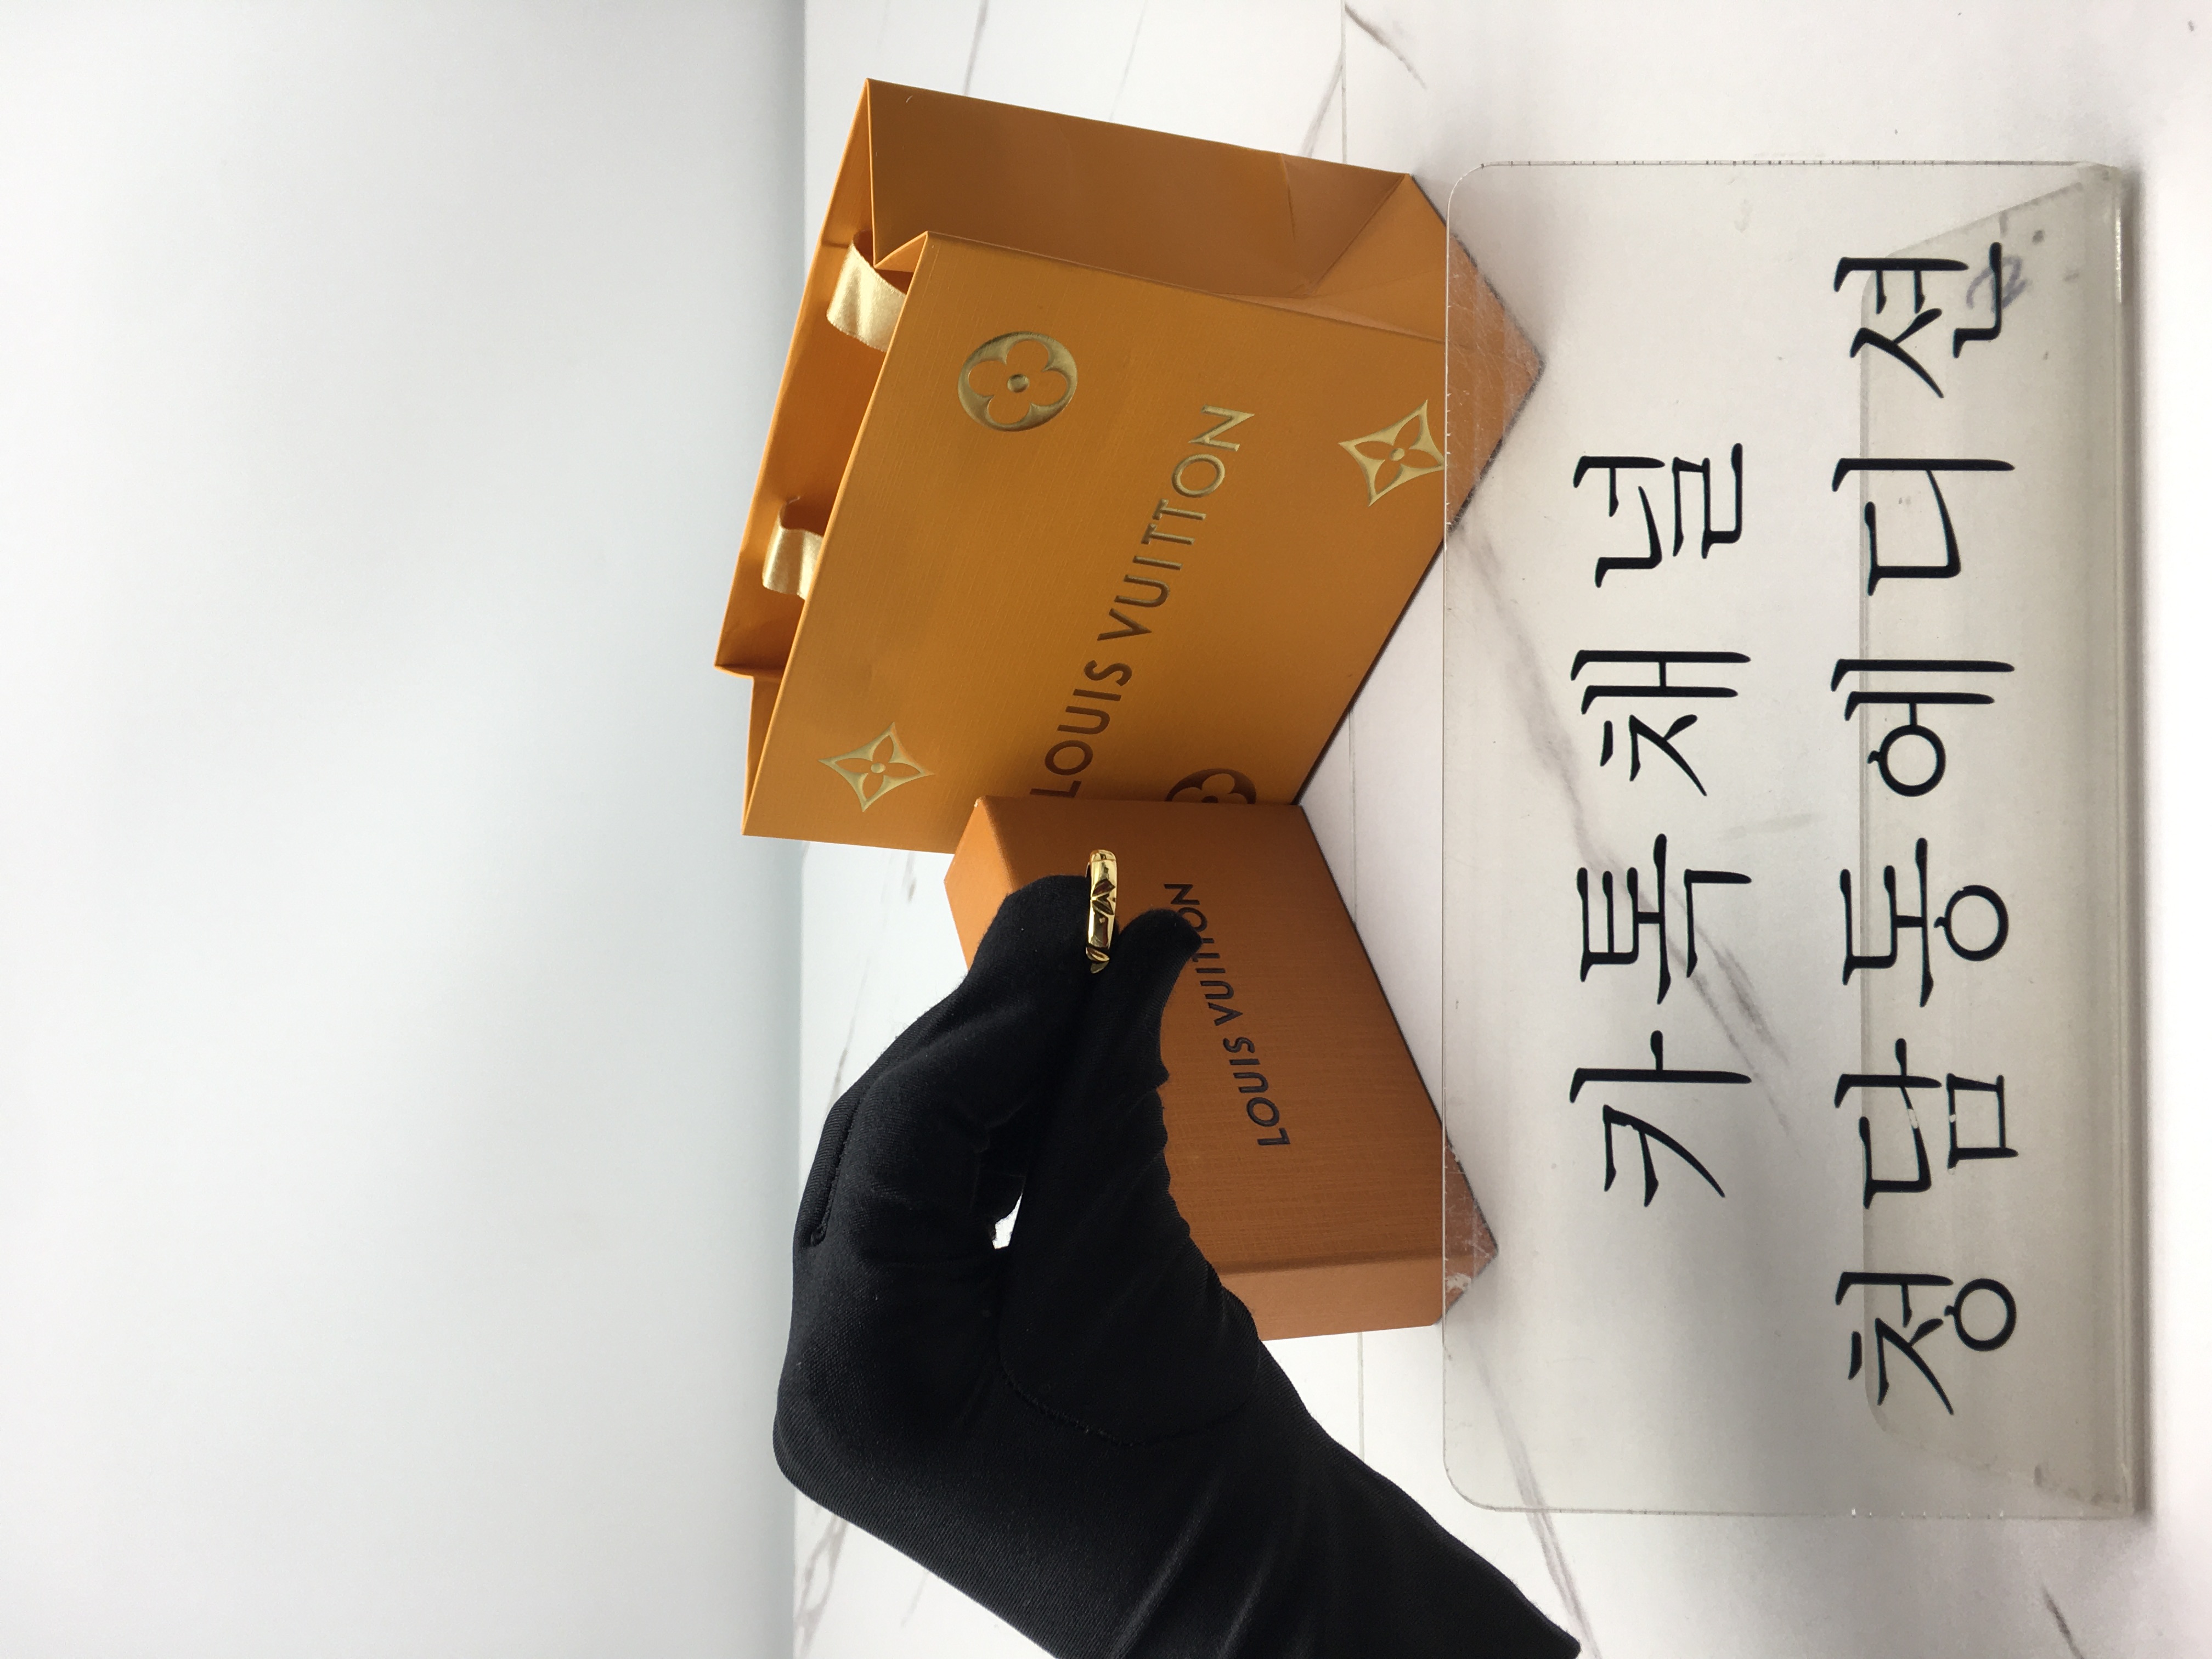 LOUIS VUITTON
LOUIS VUITTON
카톡채널
청담동에디션